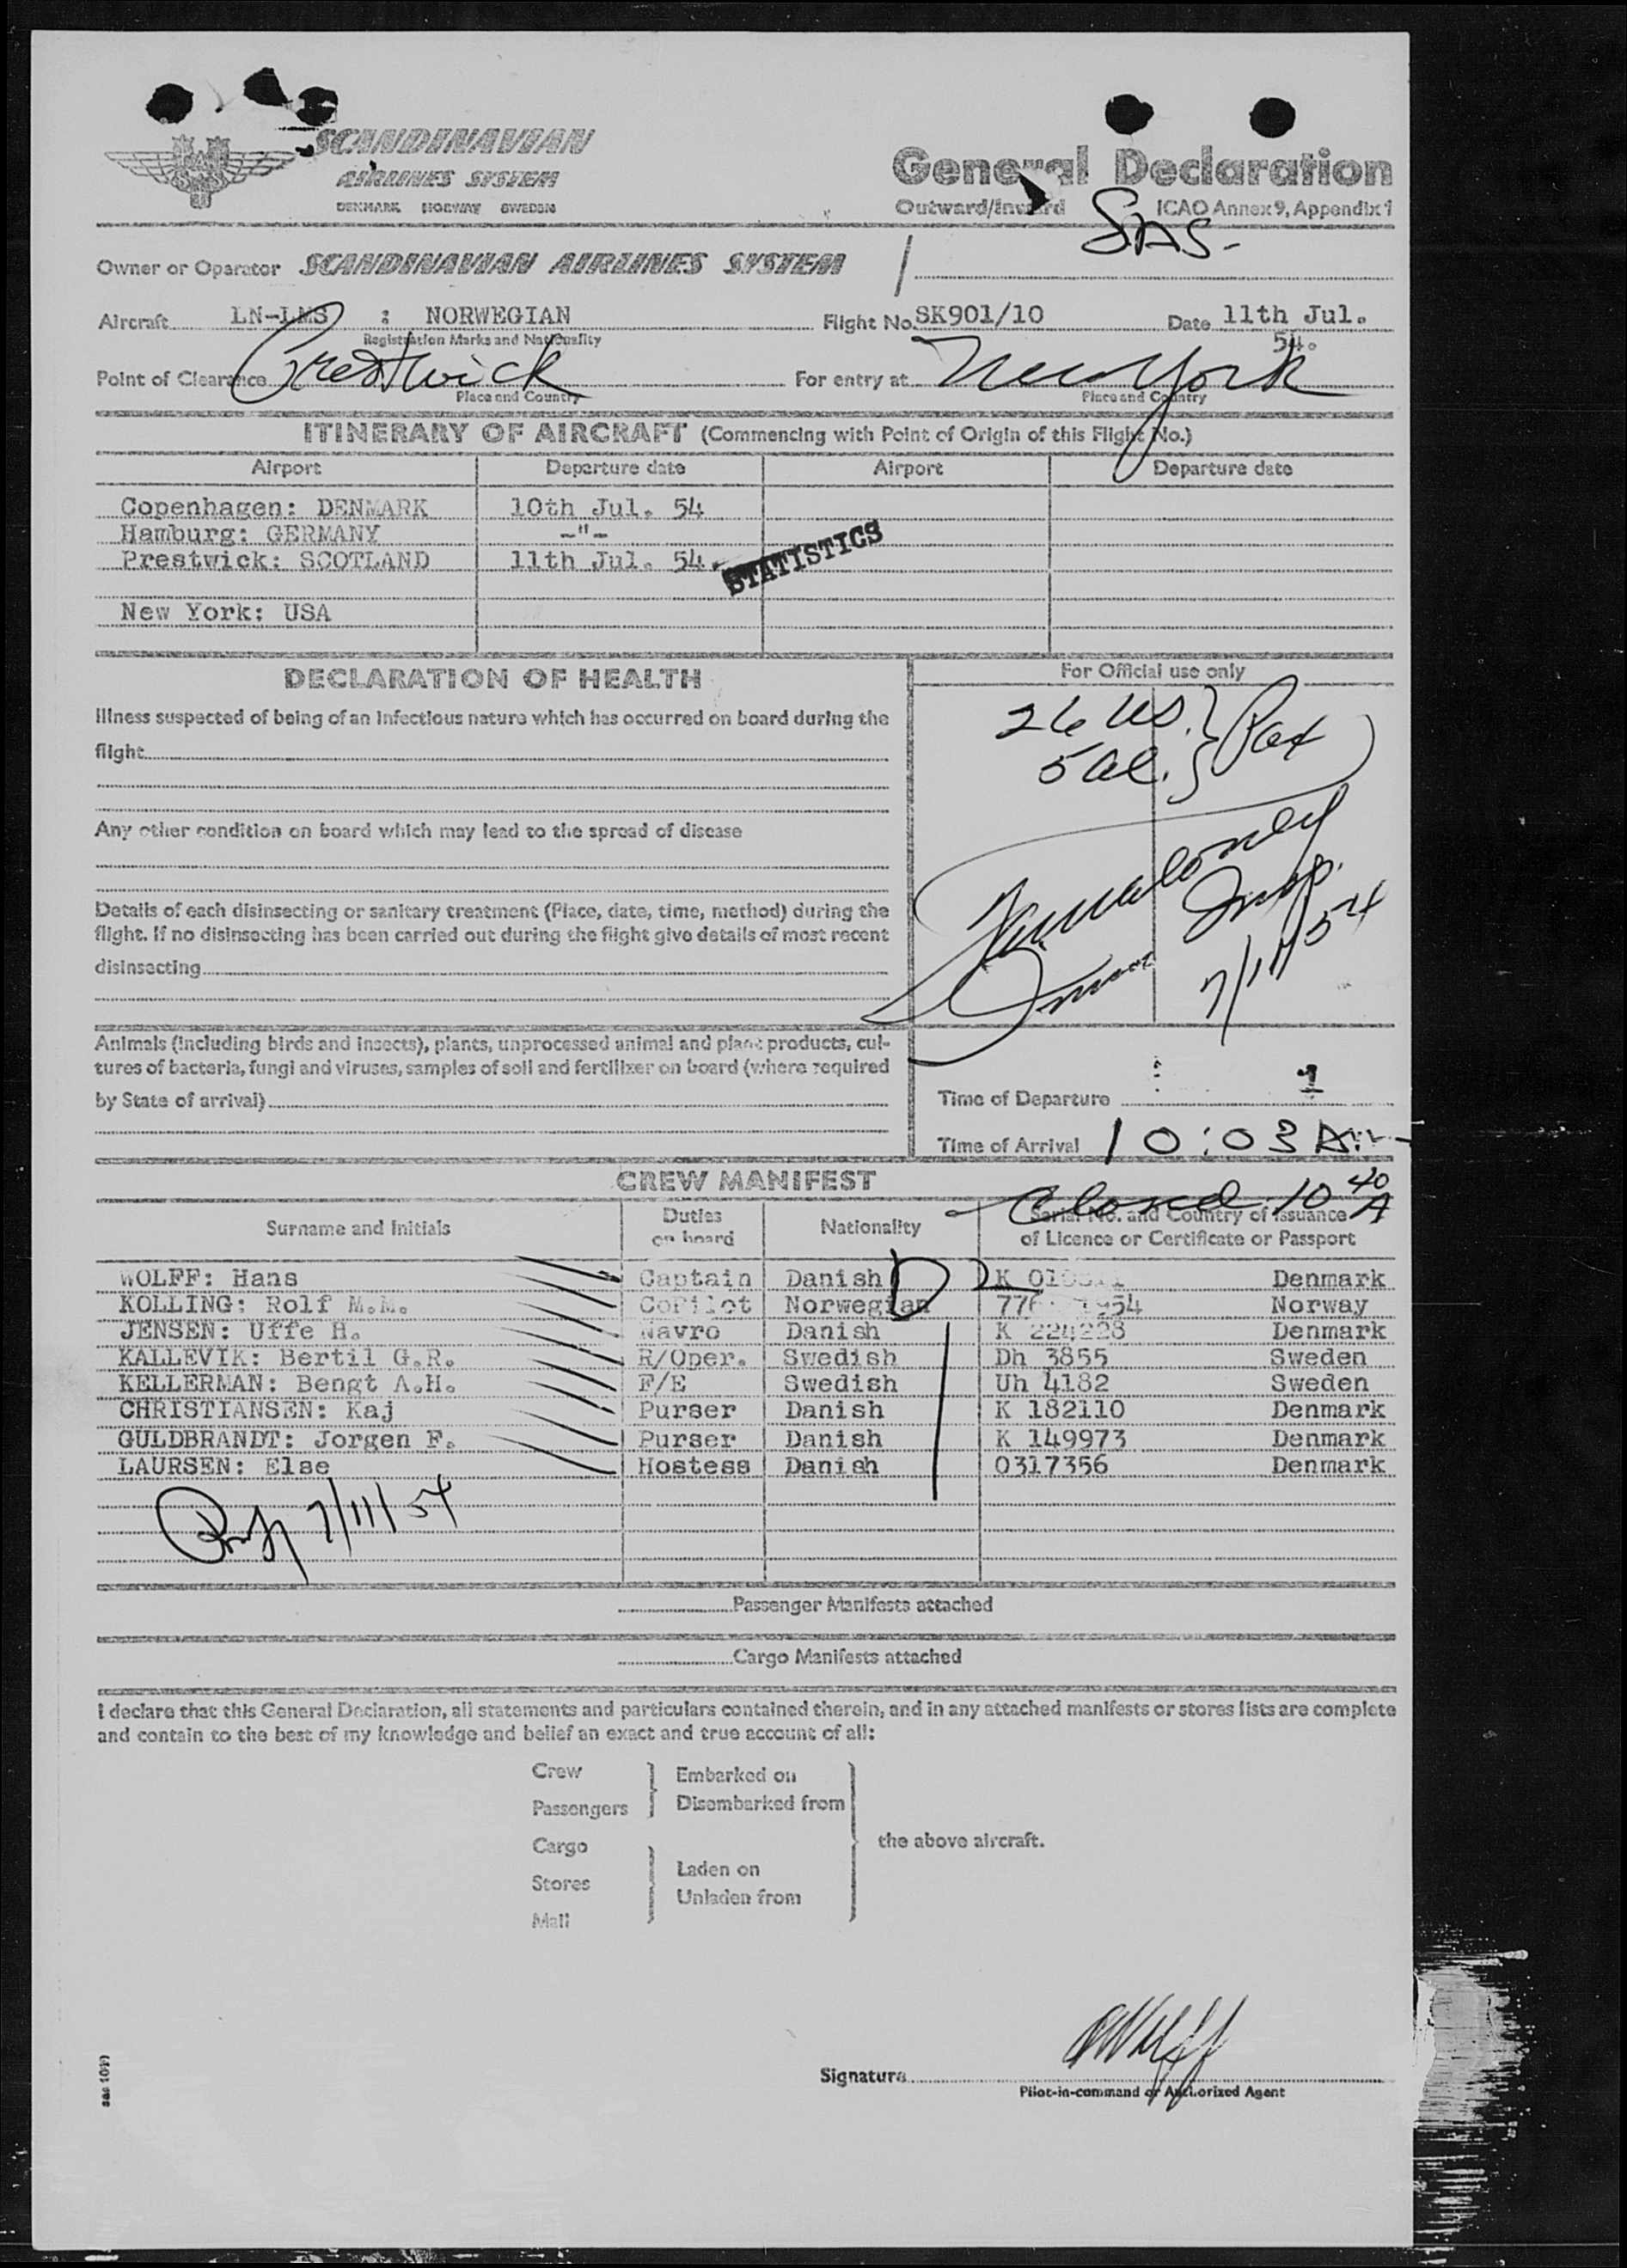 SCANDINAVIAN
AIRLINES SYSTEM
DENMARK NORWAY SWEDEN
General Declaration
Outward/Inward ICAO Annex 9, Appendix 1
SAS-
Owner or Operator SCANDINAVIAN AIRLINES SYSTEM
Aircraft LN-LMS : NORWEGIAN Flight No. SK901/10 Date 11th Jul. 54.
Registration Marks and Nationality
Point of Clearance Prestwick For entry at New York
Place and Country Place and Country
ITINERARY OF AIRCRAFT (Commencing with Point of Origin of this Flight No.)
Airport Departure date Airport Departure date
Copenhagen: DENMARK 10th Jul. 54
Hamburg: GERMANY -"-
Prestwick: SCOTLAND 11th Jul. 54.
STATISTICS
New York: USA
DECLARATION OF HEALTH
Illness suspected of being of an infectious nature which has occurred on board during the
flight
Any other condition on board which may lead to the spread of disease
Details of each disinsecting or sanitary treatment (Place, date, time, method) during the
flight. If no disinsecting has been carried out during the flight give details of most recent
disinsecting
Animals (including birds and insects), plants, unprocessed animal and plant products, cul-
tures of bacteria, fungi and viruses, samples of soil and fertilizer on board (where required
by State of arrival)
For Official use only
26 US.
5 al. } Pax
Insp.
7/11/54
Time of Departure
Time of Arrival 10:03 A
Closed 10 40 A
CREW MANIFEST
Surname and Initials Duties on board Nationality Serial No. and Country of Issuance of Licence or Certificate or Passport
WOLFF: Hans Captain Danish K Denmark
KOLLING: Rolf M.M. CoPilot Norwegian Norway
JENSEN: Uffe H. Navro Danish K 224228 Denmark
KALLEVIK: Bertil G.R. R/Oper. Swedish Dh 3855 Sweden
KELLERMAN: Bengt A.H. F/E Swedish Uh 4182 Sweden
CHRISTIANSEN: Kaj Purser Danish K 182110 Denmark
GULDBRANDT: Jorgen F. Purser Danish K 149973 Denmark
LAURSEN: Else Hostess Danish 0317356 Denmark
7/11/54
Passenger Manifests attached
Cargo Manifests attached
I declare that this General Declaration, all statements and particulars contained therein, and in any attached manifests or stores lists are complete
and contain to the best of my knowledge and belief an exact and true account of all:
Crew
Passengers
Embarked on
Disembarked from
Cargo
Stores
Mail
Laden on
Unladen from
the above aircraft.
Signature
Pilot-in-command or Authorized Agent